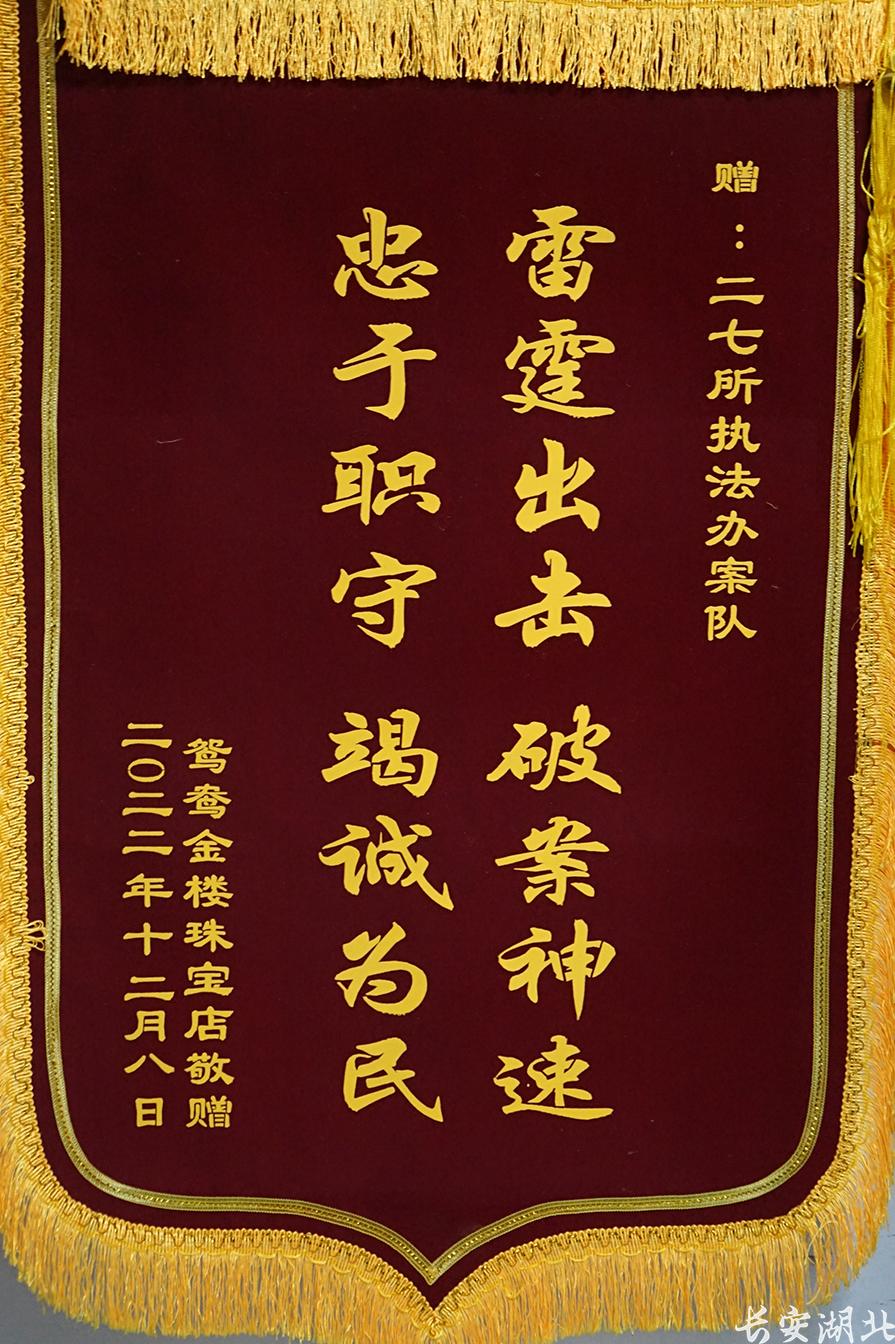 赠：二七所执法办案队
雷霆出击 破案神速
忠于职守 竭诚为民
鸳鸯金楼珠宝店敬赠
二〇二二年十二月八日
长安湖北